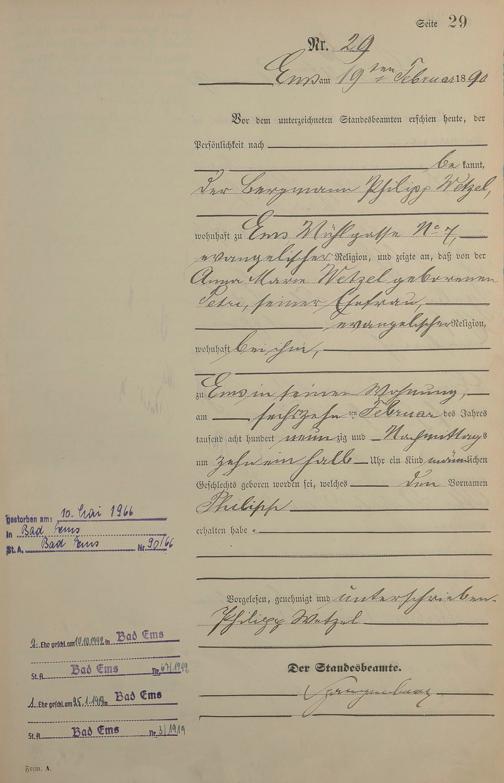 Seite 29
Nr. 29
Ems am 19ten Februar 1890
Vor dem unterzeichneten Standesbeamten erschien heute, der
Persönlichkeit nach
be kannt,
der Bergmann Philipp Wetzel,
wohnhaft zu Ems Mühlgasse No 7,
evangelischer Religion, und zeigte an, daß von der
Anna Marie Wetzel geborenen
Petri, seiner Ehefrau,
evangelischer Religion,
wohnhaft bei ihm,
zu Ems in seiner Wohnung,
am sechszehn ten Februar des Jahres
tausend acht hundert neun zig und Nachmittags
um zehn ein halb Uhr ein Kind männlichen
Geschlechts geboren worden sei, welches den Vornamen
Philipp
erhalten habe.
gestorben am: 10. Mai 1966
in Bad Ems
St. A. Bad Ems Nr. 90/66
Vorgelesen, genehmigt und unterschrieben.
Philipp Wetzel
2. Ehe geschl. am in Bad Ems
St. A. Bad Ems Nr.
Der Standesbeamte.
1. Ehe geschl. am 25.1.1919 in Bad Ems
St. A. Bad Ems Nr. 3/1919
Form. A.